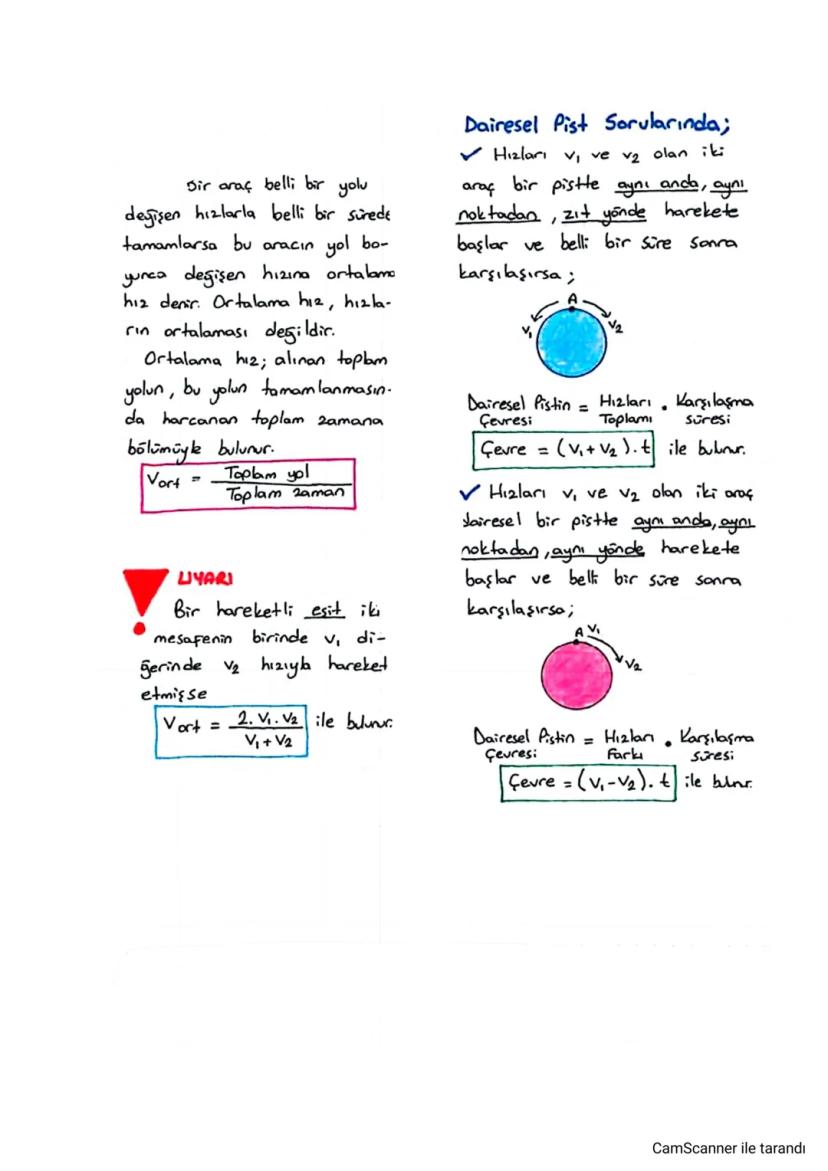 Bir araç belli bir yolu
değişen hızlarla belli bir sürede
tamamlarsa bu aracın yol bo-
yunca değişen hızına ortalama
hız denir. Ortalama hız, hızla-
rın ortalaması değildir.
Ortalama hız; alınan toplam
yolun, bu yolun tamamlanmasın-
da harcanan toplam zamana
bölümüyle bulunur.
Vort = Toplam yol / Toplam zaman
UYARI
Bir hareketli eşit iki
mesafenin birinde V₁ di-
ğerinde V₂ hızıyla hareket
etmişse
Vort = 2.V₁.V₂ / V₁+V₂ ile bulunur.
Dairesel Pist Sorularında;
✓ Hızları V₁ ve V₂ olan iki
araç bir pistte aynı anda, aynı
noktadan, zıt yönde harekete
başlar ve belli bir süre sonra
karşılaşırsa;
A
V₁ V₂
Dairesel Pistin = Hızları . Karşılaşma
Çevresi Toplamı süresi
Çevre = (V₁+V₂).t ile bulunur.
✓ Hızları V₁ ve V₂ olan iki araç
dairesel bir pistte aynı anda, aynı
noktadan, aynı yönde harekete
başlar ve belli bir süre sonra
karşılaşırsa;
A V₁
V₂
Dairesel Pistin = Hızları . Karşılaşma
Çevresi Farkı süresi
Çevre = (V₁-V₂).t ile bulunur.
CamScanner ile tarandı